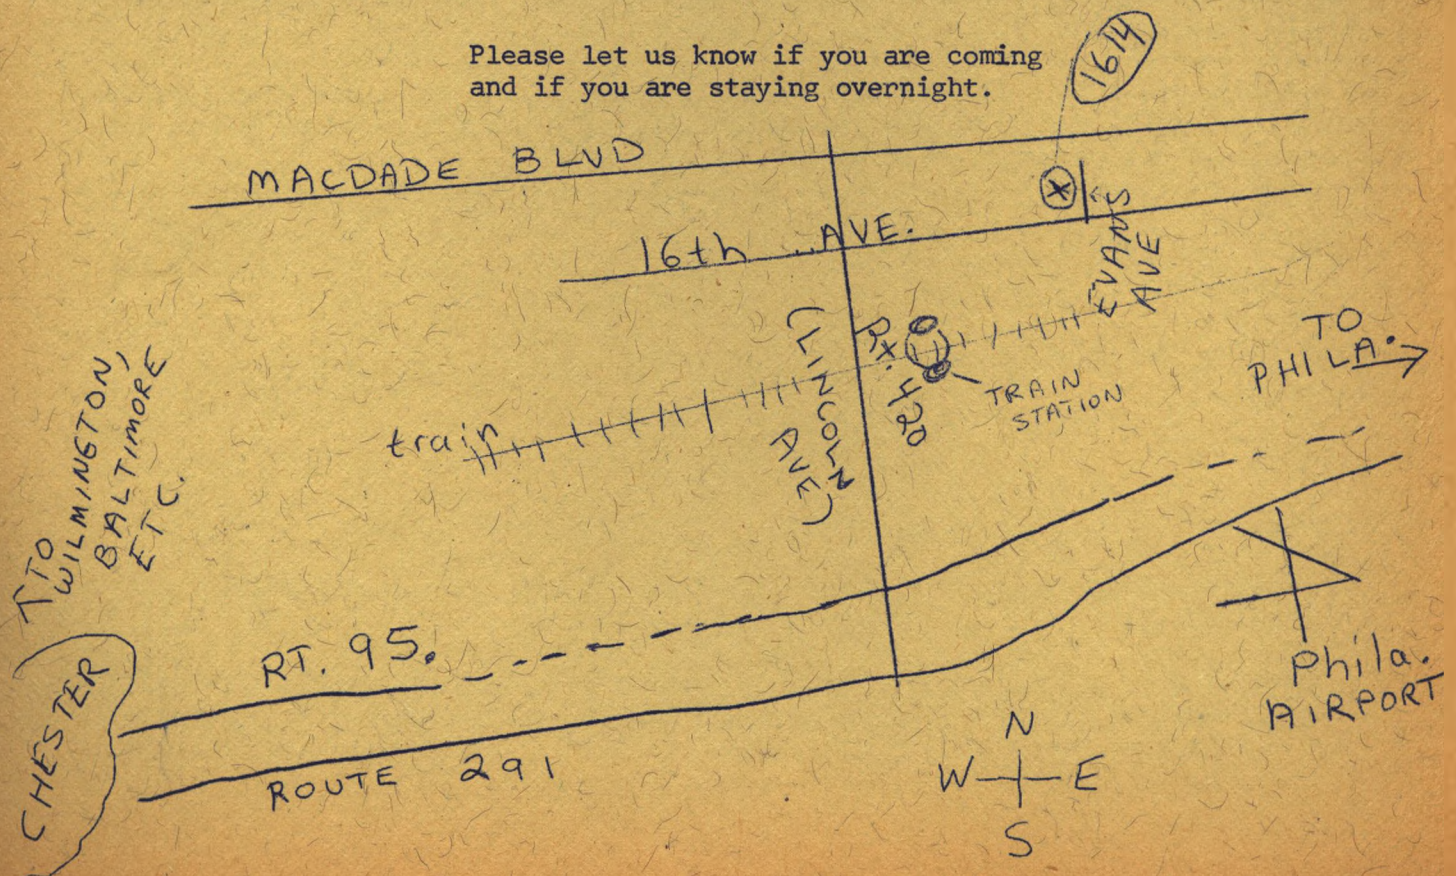 Please let us know if you are coming
and if you are staying overnight.
1614
MACDADE BLVD
16th AVE.
EVANS
AVE
(LINCOLN
AVE)
Rt. 420
train
TRAIN
STATION
TO
PHILA.
TO
WILMINGTON,
BALTIMORE
ETC.
RT. 95.
CHESTER
ROUTE 291
Phila.
AIRPORT
N
W E
S